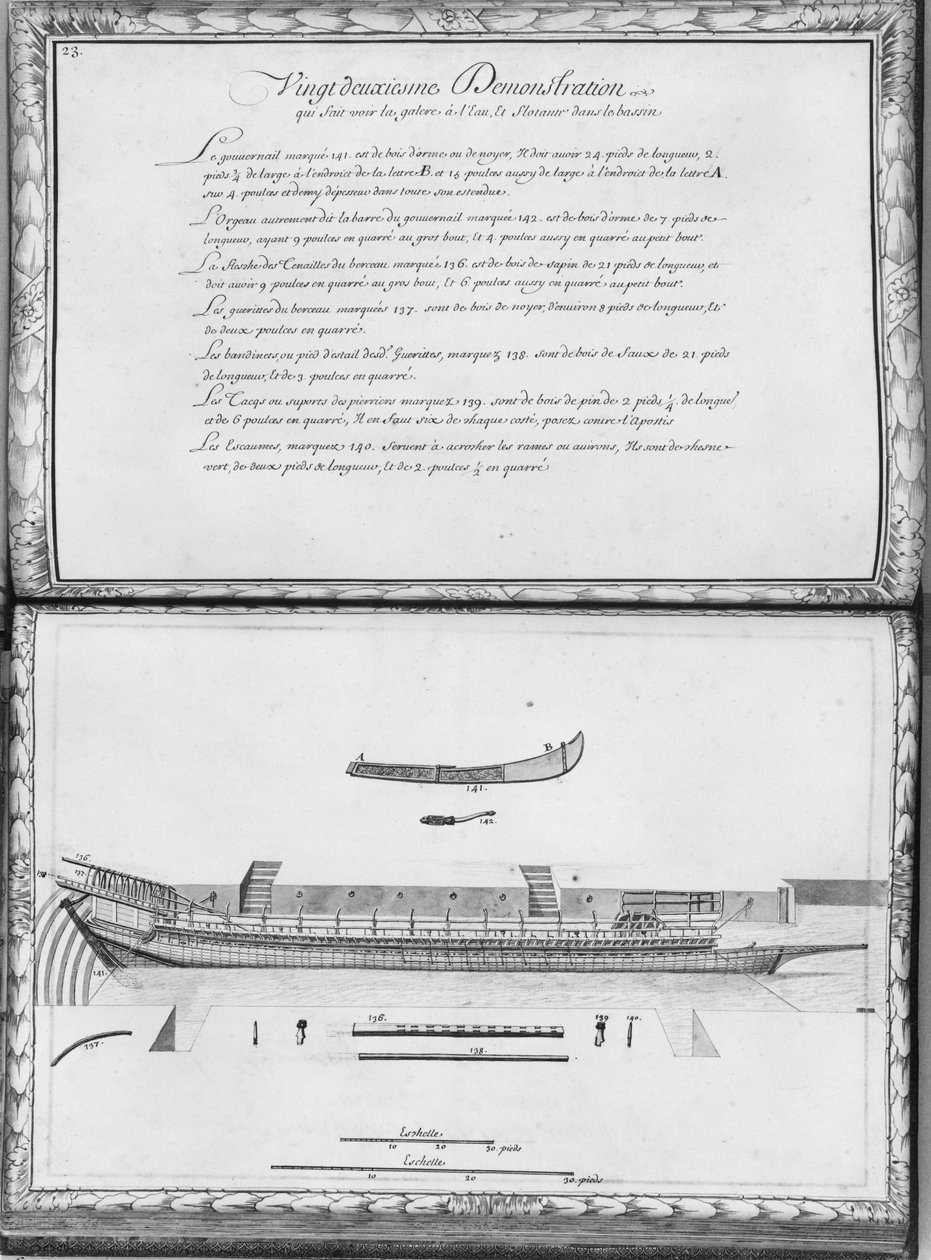 23.
Vingt deuxiesme Demonstration
qui fait voir la galere à l'Eau, Et flotante dans le bassin
Le gouvernail marqué 141. est de bois d'orme ou de noyer, Il doit avoir 24. pieds de longueur, 2.
pieds 3/4 de large à l'endroict de la lettre B. et 15 poulces aussy de large à l'endroict de la lettre A
sur 4. poulces et demy d'epesseur dans toute son estendue.
L'Orgeau autrement dit la barre du gouvernail marquée 142. est de bois d'orme de 7. pieds de
longueur, ayant 9 poulces en quarré au gros bout, Et 4. poulces aussy en quarré au petit bout.
La flesche des Tenailles du berceau marqué 136. est de bois de sapin de 21 pieds de longueur, et
doit avoir 9 poulces en quarré au gros bout, Et 6 poulces aussy en quarré au petit bout.
Les guerittes du berceau marquées 137. sont de bois de noyer, d'environ 8 pieds de longueur, Et
de deux poulces en quarré.
Les bandinets, ou pied d'estail desd. Guerittes, marquez 138. sont de bois de faux de 21. pieds
de longueur, Et de 3. poulces en quarré.
Les Tacqs ou suports des pierriers marquez 139. sont de bois de pin de 2 pieds 1/4 de longue.r
et de 6 poulces en quarré, Il en faut six de chaque costé, posez contre l'Apostis
Les Escaumes, marquez 140. servent à acrocher les rames ou avirons, Ils sont de chesne
vert, de deux pieds de longueur, Et de 2. poulces 1/2 en quarré
A B
141.
142.
136.
137.
138.
141.
136. 139 140.
137.
138.
Eschelle
10 20 30 pieds
Eschelle
10 20 30 pieds